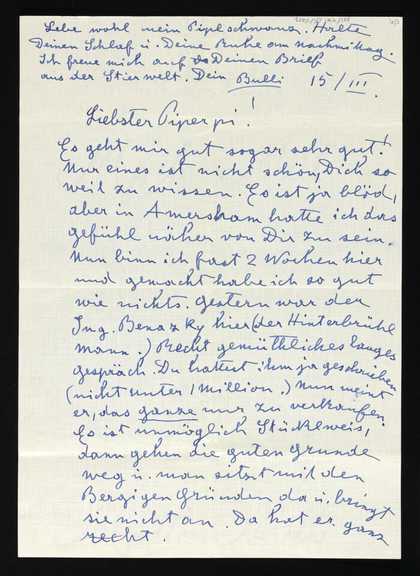 Lebe wohl mein Pipelschwanz. Halte
Deinen Schlaf u. Deine Ruhe am nachmittag.
Ich freue mich auf Deinen Brief
aus der Stierwelt. Dein Bulli 15/III.
Liebster Piperpi!
Es geht mir gut sogar sehr gut!
Nur eines ist nicht schön, Dich so
weil zu wissen. Es ist ja blöd,
aber in Amersham hatte ich das
gefühl näher von Dir zu sein.
Nun binn ich fast 2 Wochen hier
und gemacht habe ich so gut
wie nichts. Gestern war der
Ing. Benazky hier (der Hinterbrühl
mann.) Recht gemüthliches langes
gespräch. Du hattest ihm ja geschrieben
(nicht unter 1 Million.) Nun meint
er, das ganze nur zu verkaufen
Es ist unmöglich Stückweis,
dann gehen die guten Grunde
weg u. man sitzt mit den
Bergigen Gründen da u. bringt
sie nicht an. Da hat er ganz
recht.